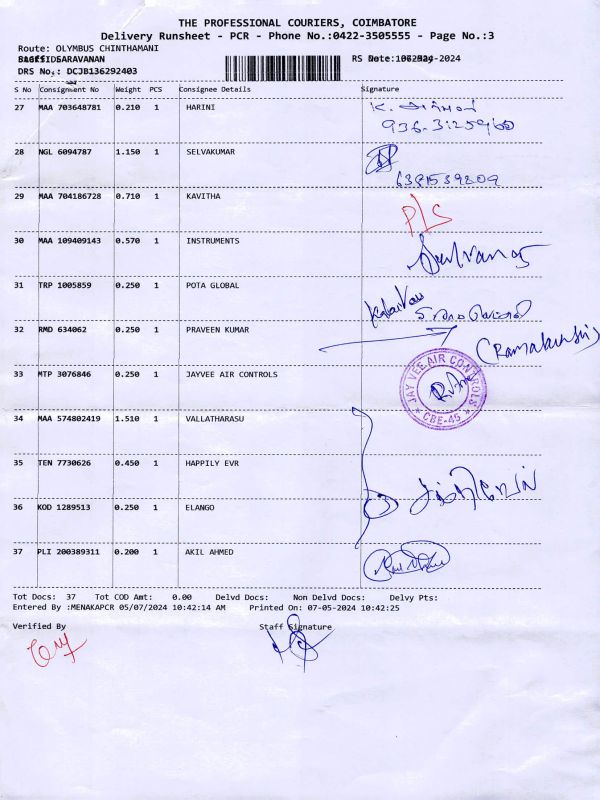 THE PROFESSIONAL COURIERS, COIMBATORE
Delivery Runsheet - PCR - Phone No.:0422-3505555 - Page No.:3
Route: OLYMBUS CHINTHAMANI
SARAVANAN
DRS No.: DCJB136292403
S No Consignment No Weight PCS Consignee Details Signature
27 MAA 703648781 0.210 1 HARINI
28 NGL 6094787 1.150 1 SELVAKUMAR
29 MAA 704186728 0.710 1 KAVITHA
P/S
30 MAA 109409143 0.570 1 INSTRUMENTS
31 TRP 1005859 0.250 1 POTA GLOBAL
32 RMD 634062 0.250 1 PRAVEEN KUMAR
33 MTP 3076846 0.250 1 JAYVEE AIR CONTROLS
JAY VEE AIR CONTROLS
* CBE-45 *
34 MAA 574802419 1.510 1 VALLATHARASU
35 TEN 7730626 0.450 1 HAPPILY EVR
36 KOD 1289513 0.250 1 ELANGO
37 PLI 200389311 0.200 1 AKIL AHMED
Tot Docs: 37 Tot COD Amt: 0.00 Delvd Docs: Non Delvd Docs: Delvy Pts:
Entered By :MENAKAPCR 05/07/2024 10:42:14 AM Printed On: 07-05-2024 10:42:25
Verified By Staff Signature